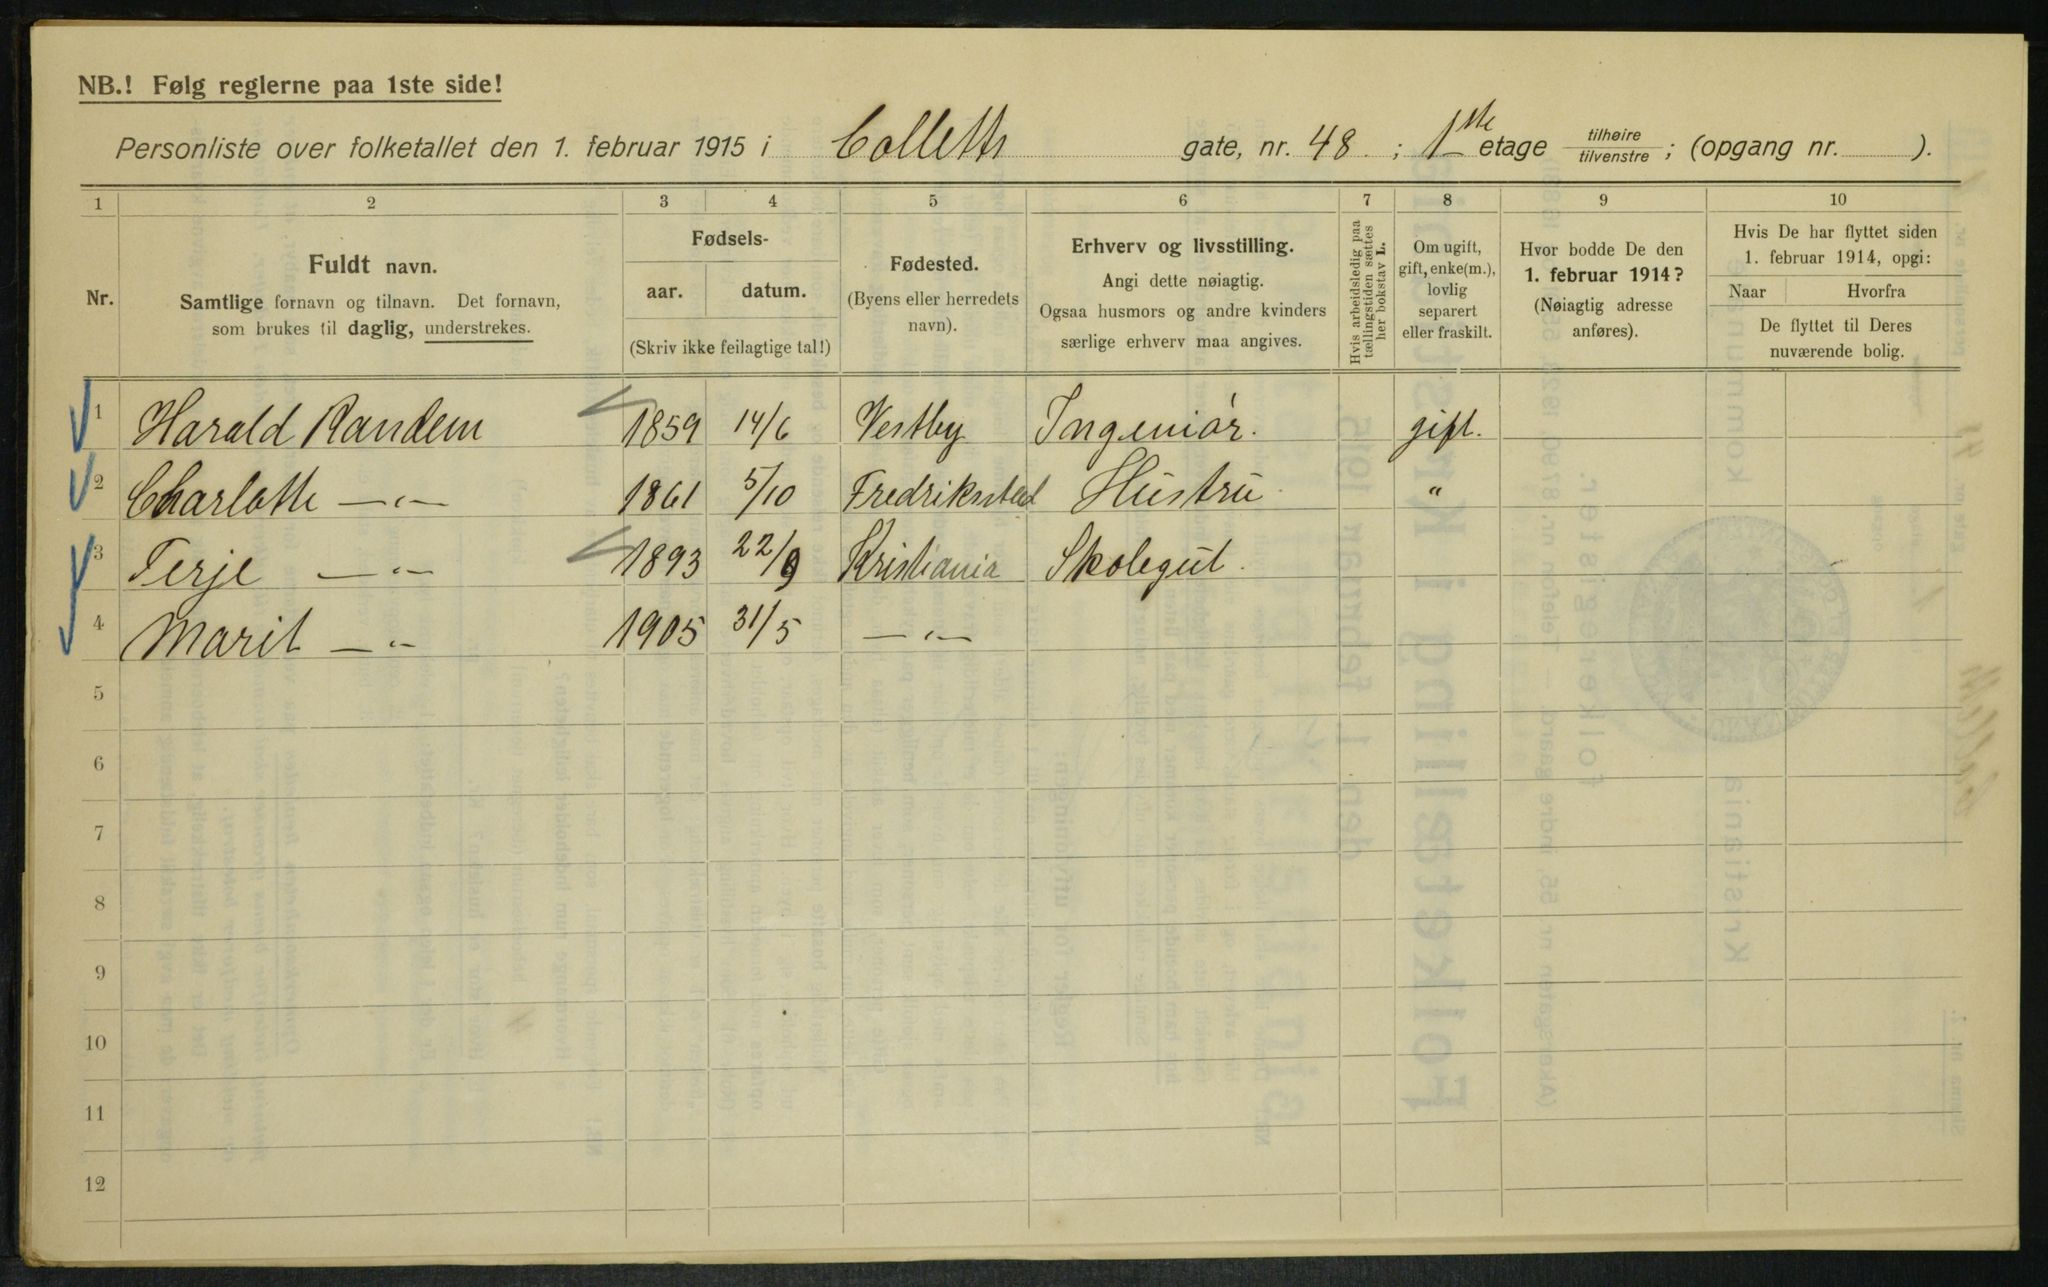 NB.! Følg reglerne paa 1ste side!
Personliste over folketallet den 1. februar 1915 i Colletts gate, nr. 48 ; 1ste etage tilhøire / tilvenstre ; (opgang nr. ).
1 2 3 4 5 6 7 8 9 10
Nr.
Fuldt navn.
Samtlige fornavn og tilnavn. Det fornavn,
som brukes til daglig, understrekes.
Fødsels-
aar. datum.
(Skriv ikke feilagtige tal!)
Fødested.
(Byens eller herredets
navn).
Erhverv og livsstilling.
Angi dette nøiagtig.
Ogsaa husmors og andre kvinders
særlige erhverv maa angives.
Hvis arbeidsledig paa
tællingstiden sættes
her bokstav L.
Om ugift,
gift, enke(m.),
lovlig
separert
eller fraskilt.
Hvor bodde De den
1. februar 1914?
(Nøiagtig adresse
anføres).
Hvis De har flyttet siden
1. februar 1914, opgi:
Naar Hvorfra
De flyttet til Deres
nuværende bolig.
1 Harald Randem 1859 14/6 Vestby Ingeniør. gift.
2 Charlotte —"— 1861 5/10 Fredriksstad Hustru "
3 Terje —"— 1893 22/9 Kristiania Skolegut.
4 Marit —"— 1905 31/5 —"—
5
6
7
8
9
10
11
12